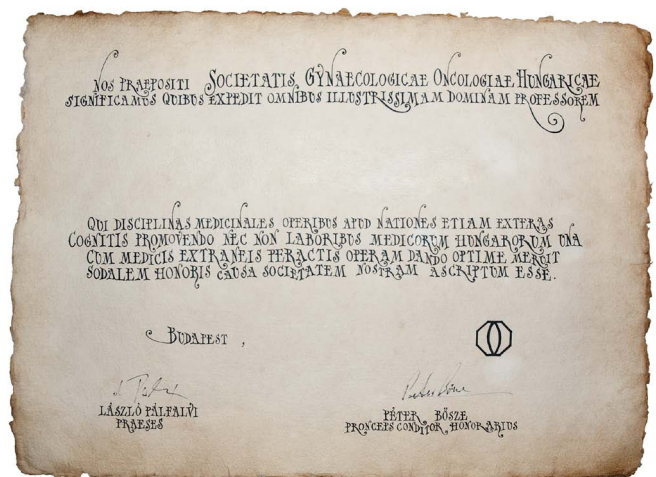 NOS PRAEPOSITI SOCIETATIS GYNAECOLOGICAE ONCOLOGIAE HUNGARICAE
SIGNIFICAMUS QUIBUS EXPEDIT OMNIBUS ILLUSTRISSIMAM DOMINAM PROFESSOREM
QUI DISCIPLINAS MEDICINALES OPERIBUS APUD NATIONES ETIAM EXTERAS
COGNITIS PROMOVENDO NEC NON LABORIBUS MEDICORUM HUNGARORUM UNA
CUM MEDICIS EXTRANEIS PERACTIS OPERAM DANDO OPTIME MERUIT
SODALEM HONORIS CAUSA SOCIETATEM NOSTRAM ASCRIPTUM ESSE.
BUDAPEST ,
LÁSZLÓ PÁLFALVI
PRAESES
PÉTER BŐSZE
PRONCEPS CONDITOR, HONORARIUS